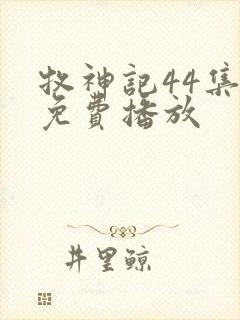 牧神記44集
免費播放
井里鲸